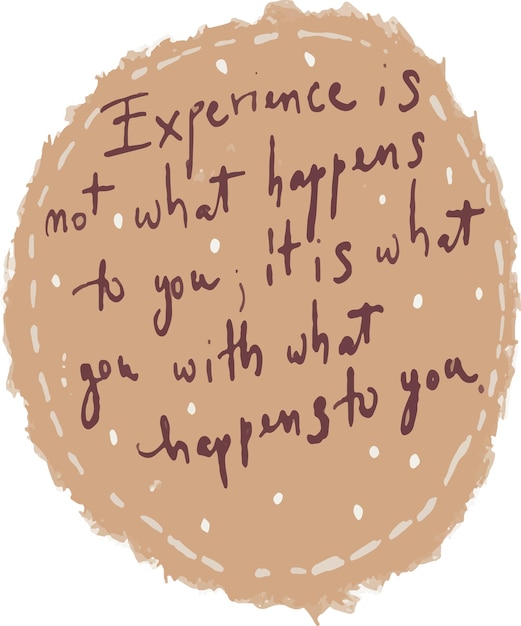 Experience is
not what happens
to you; it is what
you with what
happens to you.